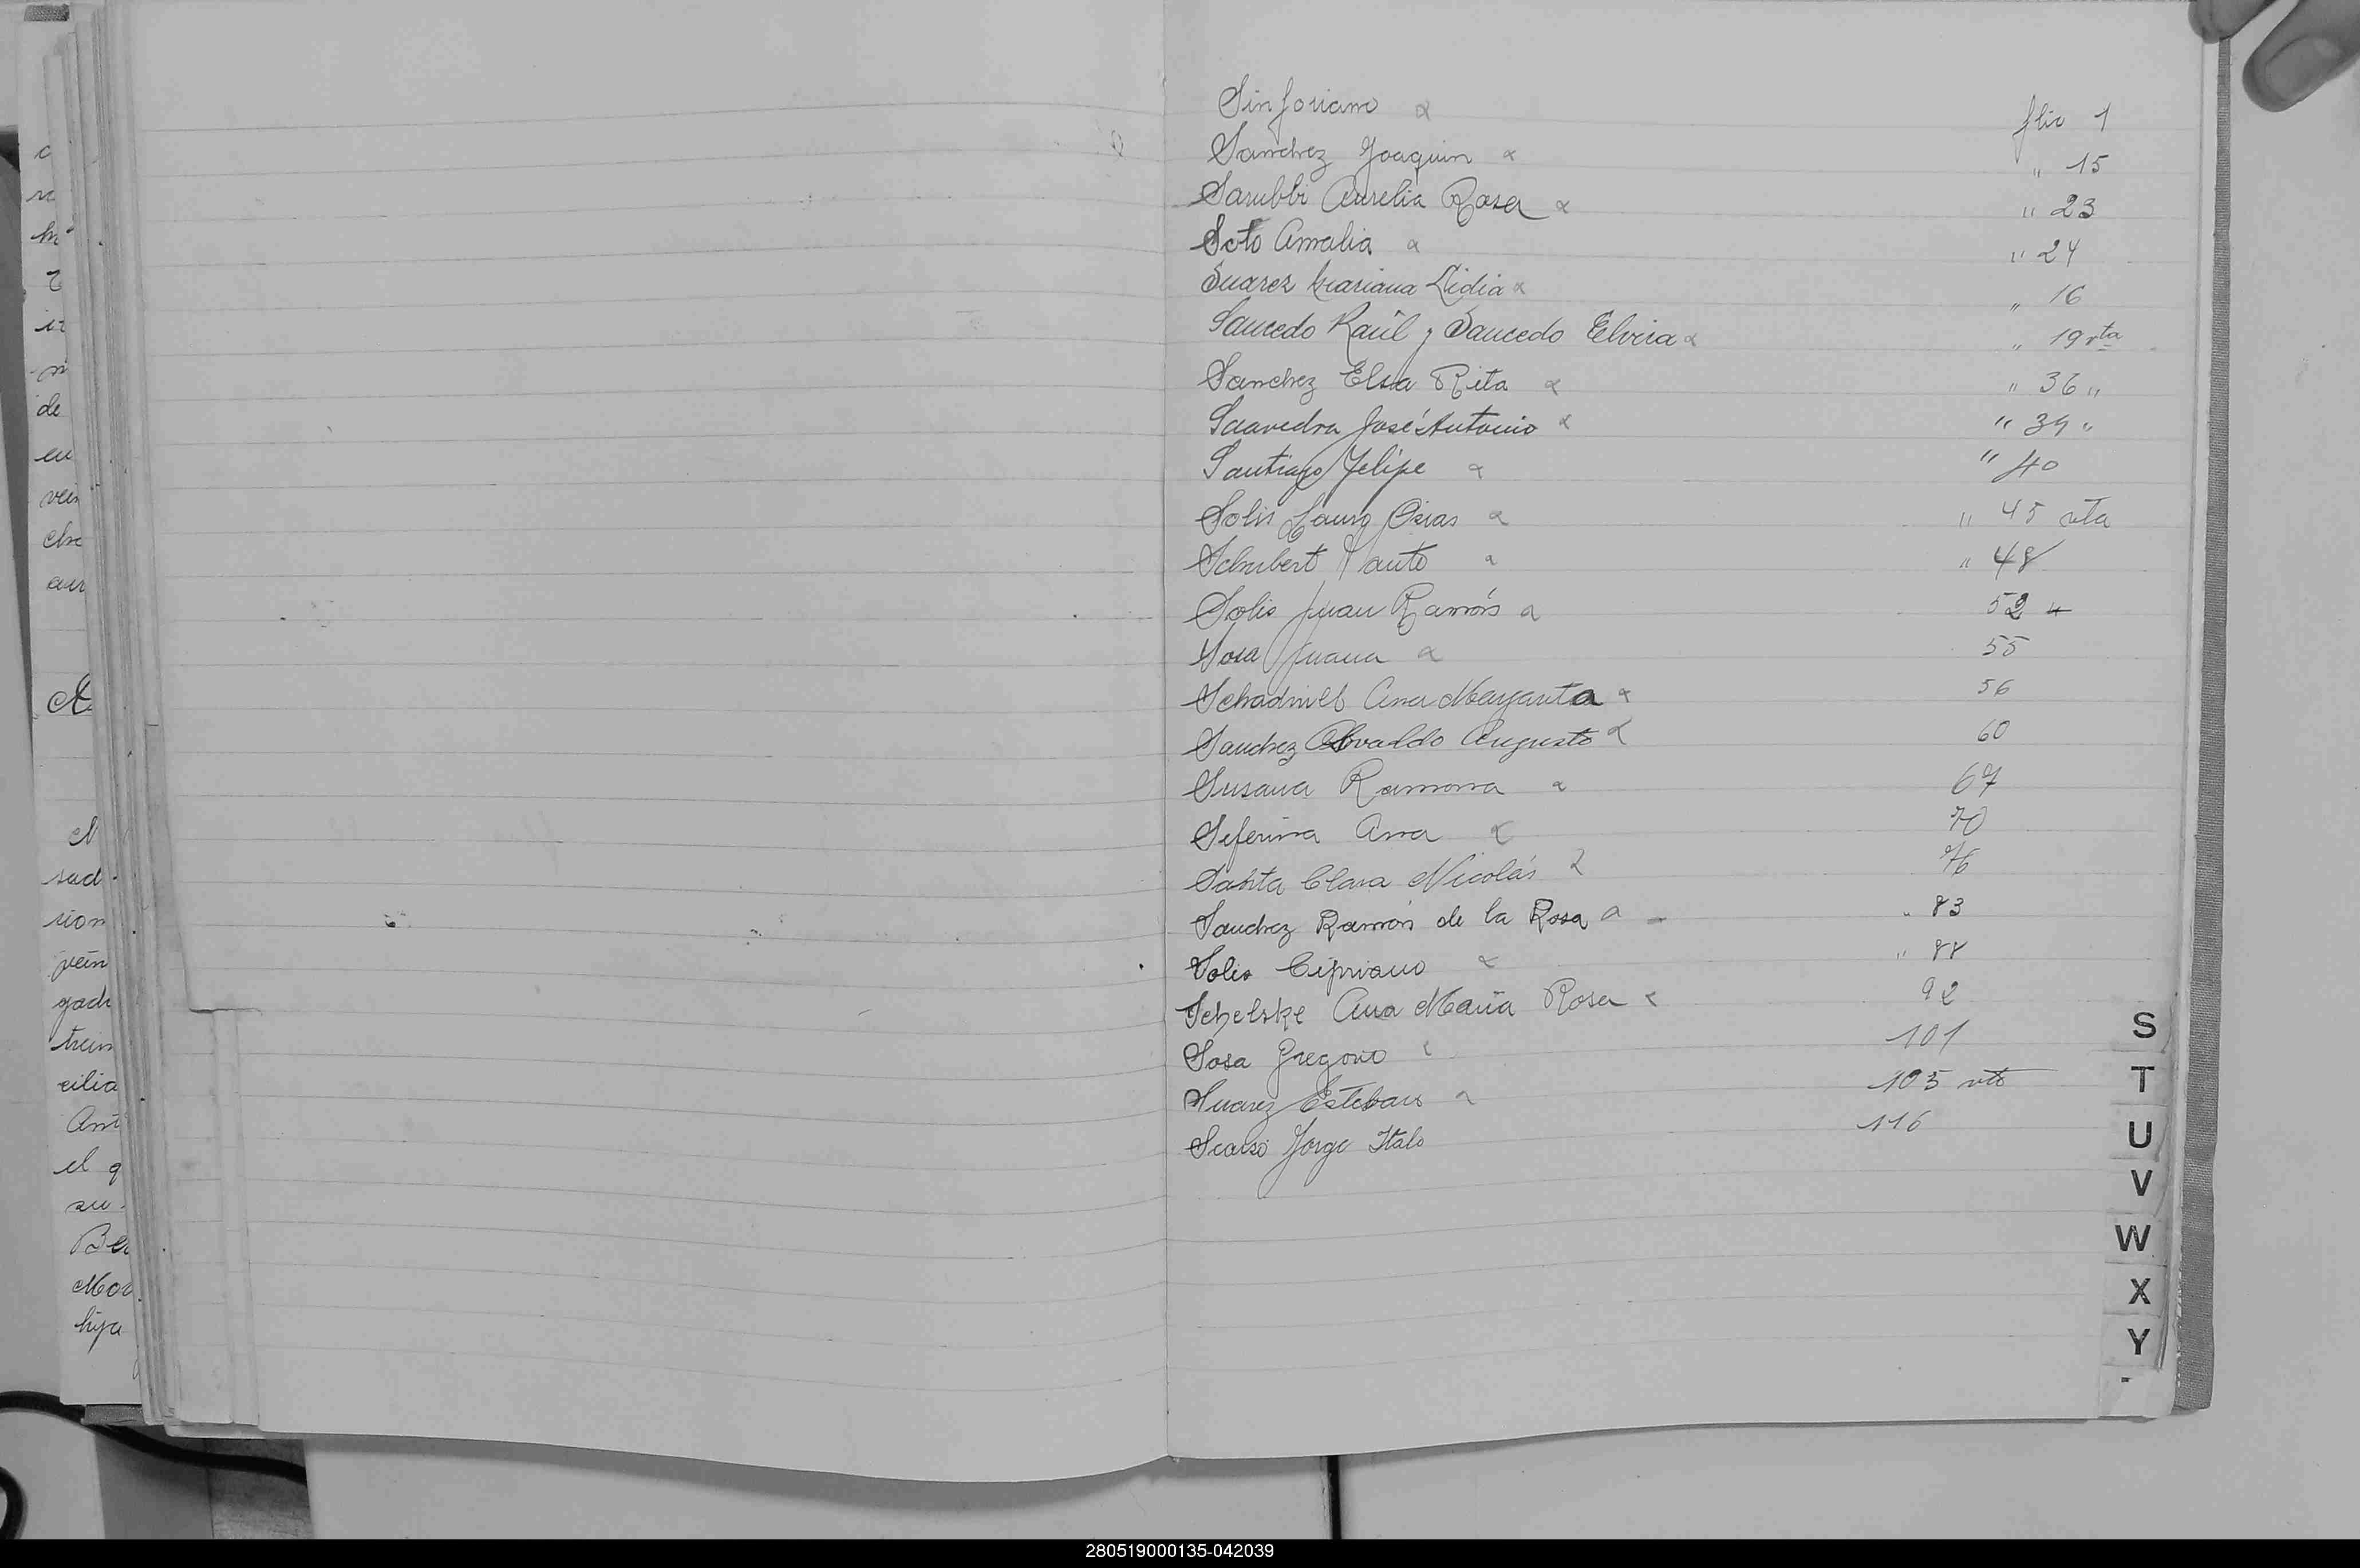 Sinforiano α flio 1
Sanchez Joaquin α " 15
Sarubbi Aurelia Rosa α " 23
Soto Amalia α " 24
Suarez Mariana Lidia α " 16
Saucedo Raúl y Saucedo Elvira α " 19 vta
Sanchez Elsa Rita α " 36 "
Saavedra José Antonio α " 39 "
Santiago Felipe α " 40
Solis Lauro Osias α " 45 vta
Schubert α " 48
Solis Juan Ramón α 52
Sosa Juana α 55
Ana Margarita α 56
Sanchez Osvaldo Augusto α 60
Susana Ramona α 67
Seferina Ana α 70
Santa Clara Nicolás α 76
Sanchez Ramón de la Rosa α " 83
Solis Cipriano α " 88
Schelske Ana María Rosa α 92
Sosa Gregorio α 101
Suarez Esteban α 105 vto
Scarso Jorge Italo 116
S
T
U
V
W
X
Y
de
en
el q
su
hija
280519000135-042039